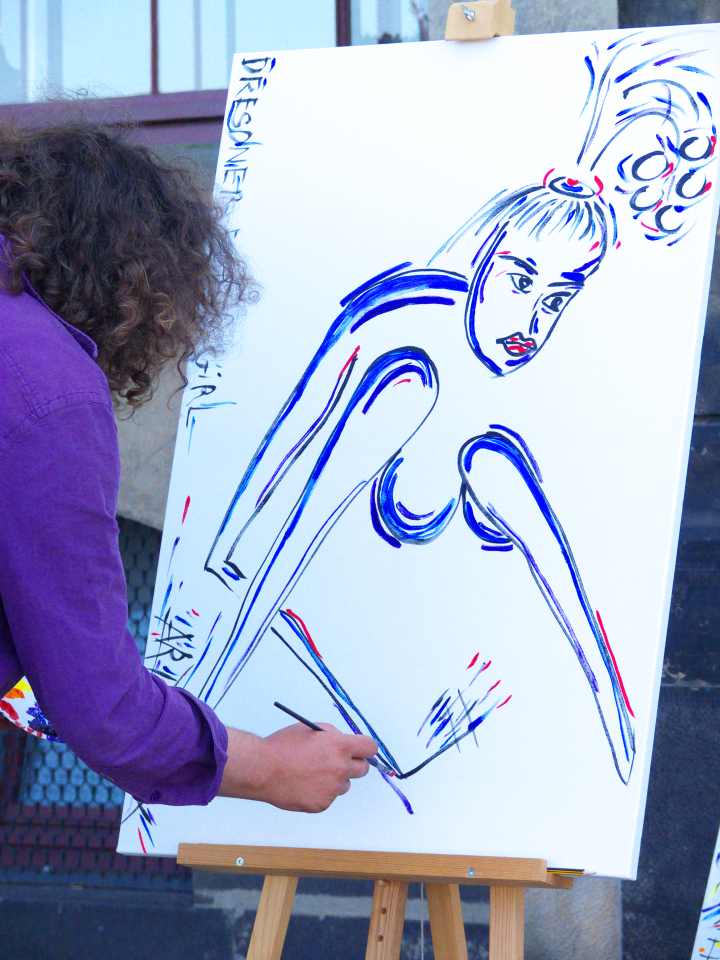 DRESDNER
GIRL